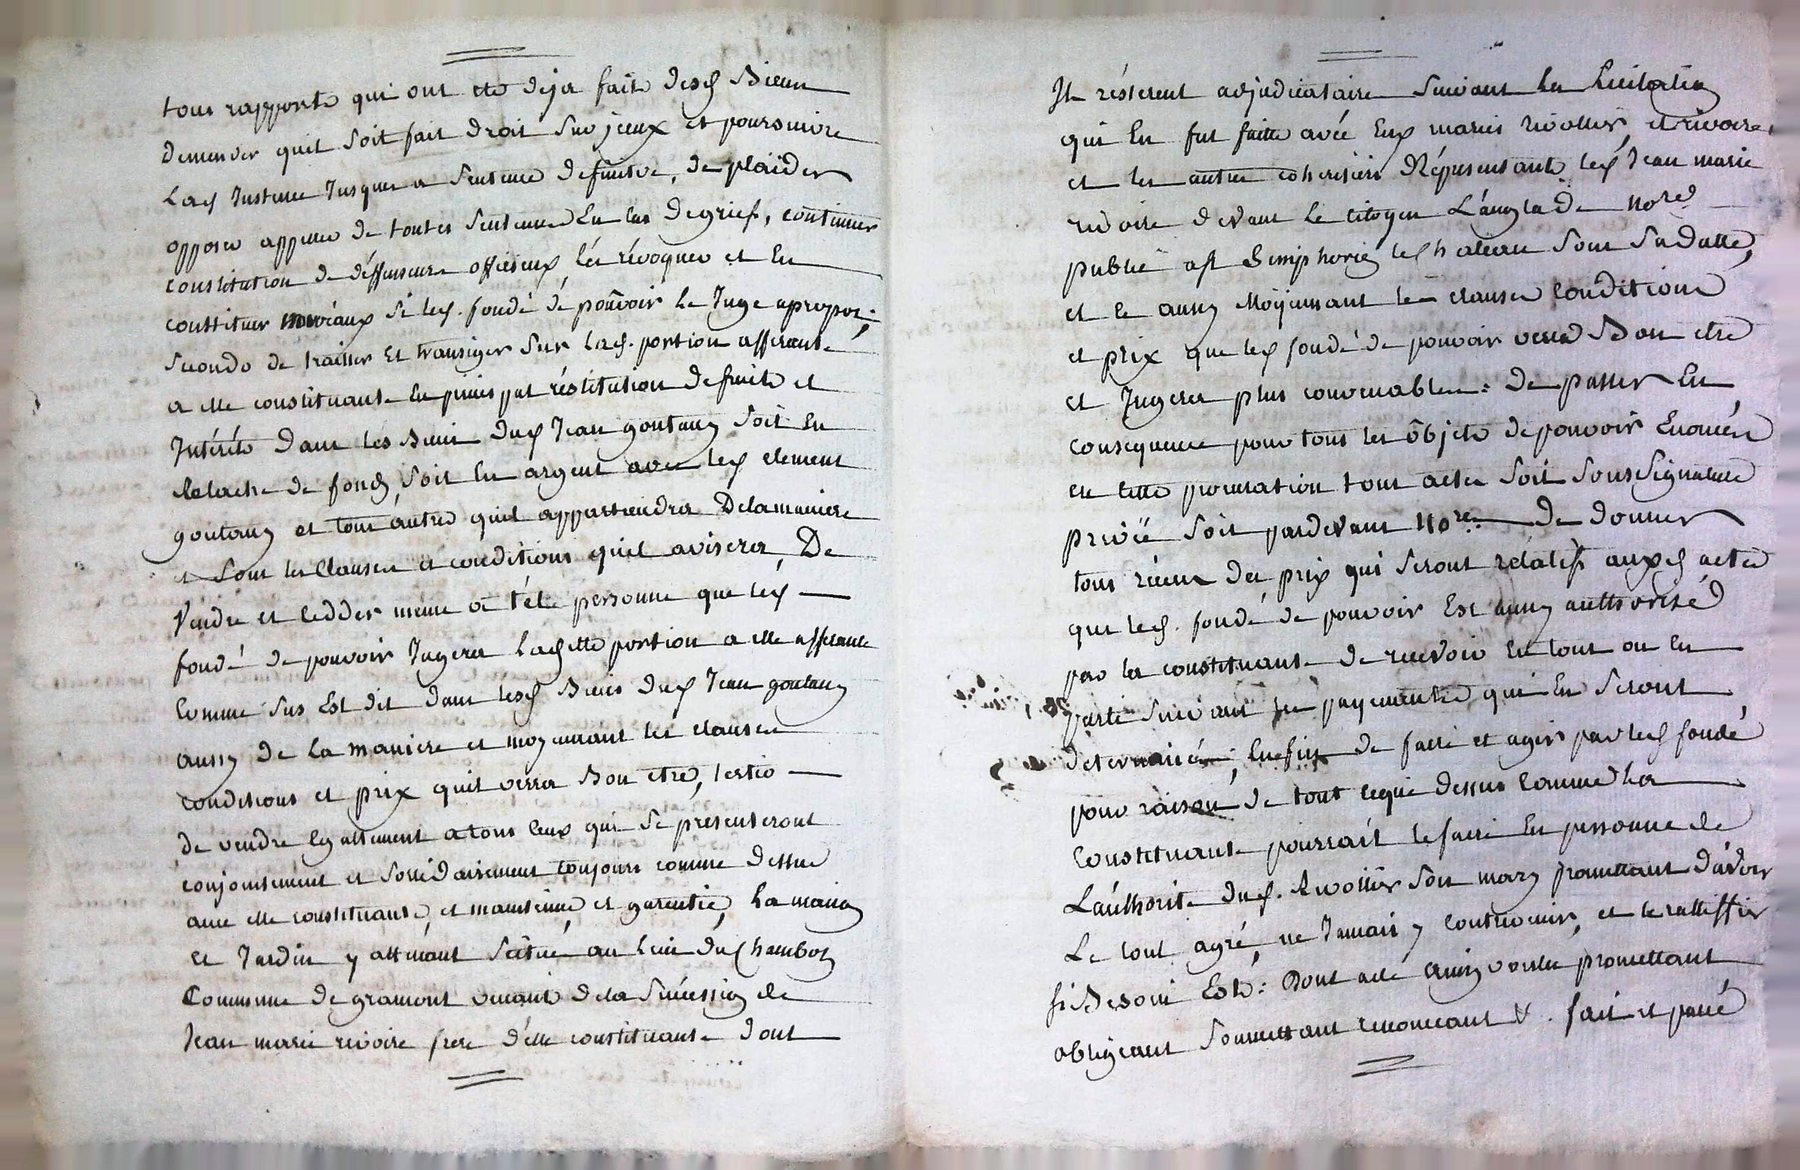 tous rapports qui ont eté deja faits desd Biens
demender quil soit fait droit sur jceux et poursuivre
Lad Instence Jusques a Sentence definitve, de plaider
opposer appeller de toutes Sentences En cas de grief, continuer
constitution de déffenseurs officieux, les révoquer et En
constituer nouveaux si led. fondé dé poûvoir le Juge apropos;
Secondo de traitter Et transiger sur lad. portion afferante
a elle constituante En principal réstitution de fruits et
Intéréts dans les Biens dud Jean goutany soit En
Relache de fonds, soit En argent avec led clement
goutany et tous autres quil appartiendra Dela maniere
et sous les Clauses et conditions quil avisera, De
Vendre et cedder même a télle personne que led
fondé de pouvoir Jugera Lad. portion a elle afferante
Comme sus Est dit dans lesd Biens dud Jean goutany
aussy de la maniere et moyennant les clauses
conditions et prix quil verra Bon etre, tertio
de vendre Egallement a tous ceux qui se presenteront
conjointement et sollidairement toujours comme dessus
avec elle constituante, et maintenue et garentie, La maison
et Jardin y attenant Scitué, au lieu du Chambon
Commune de gramont venant dela Succession de
Jean marie rivoire frere d'elle constituante dont
Ils résterent adjudicataire suivant La Licitation
qui En fut faitte avéc Eux mariés rivollier, et rivoire,
et les autres coheritiers Répresentants led Jean marie
rivoire devant le citoyen L'anglade nore
public a st Simphorien le chateau sous sa datte,
et ce aussy Moÿennant les clauses Conditions
et prix que led fondé de pouvoir verra Bon etre
et Jugera plus convenables: de passer En
consequence pour tous les óbjets de pouvoir Enoncés
en cette procuration tous actes soit sous Signature
privée soit pardevant nore de donner
tous récus des prix qui seront relatifs auxd actes
que led. fondé de pouvoir Est aussy authorisé
par la constituante de recevoir En tout ou en
partie suivant les payements qui En seront
déterminés; Enfin de faire et agir par led fondé
pour raison de tout ceque dessus Comme La
Constituante pourrait le faire En personne de
L'authorité dud. Rivollier son mary promettant d'avoir
Le tout agré, ne Jamais y Contrevenir, et le rattiffier
si Besoin Est: Dont acte ainsy voulu promettant
obligeant soumettant renonceant &. fait et passé